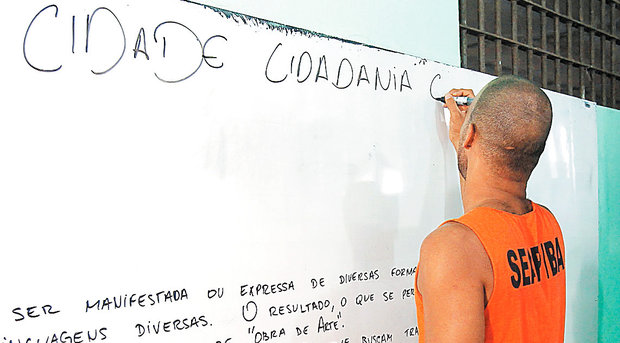 CIDADE CIDADANIA C
SER MANIFESTADA OU EXPRESSA DE DIVERSAS FORMA
INGUAGENS DIVERSAS. O RESULTADO, O QUE SE PER
DE "OBRA DE ARTE".
BUSCAM TRA